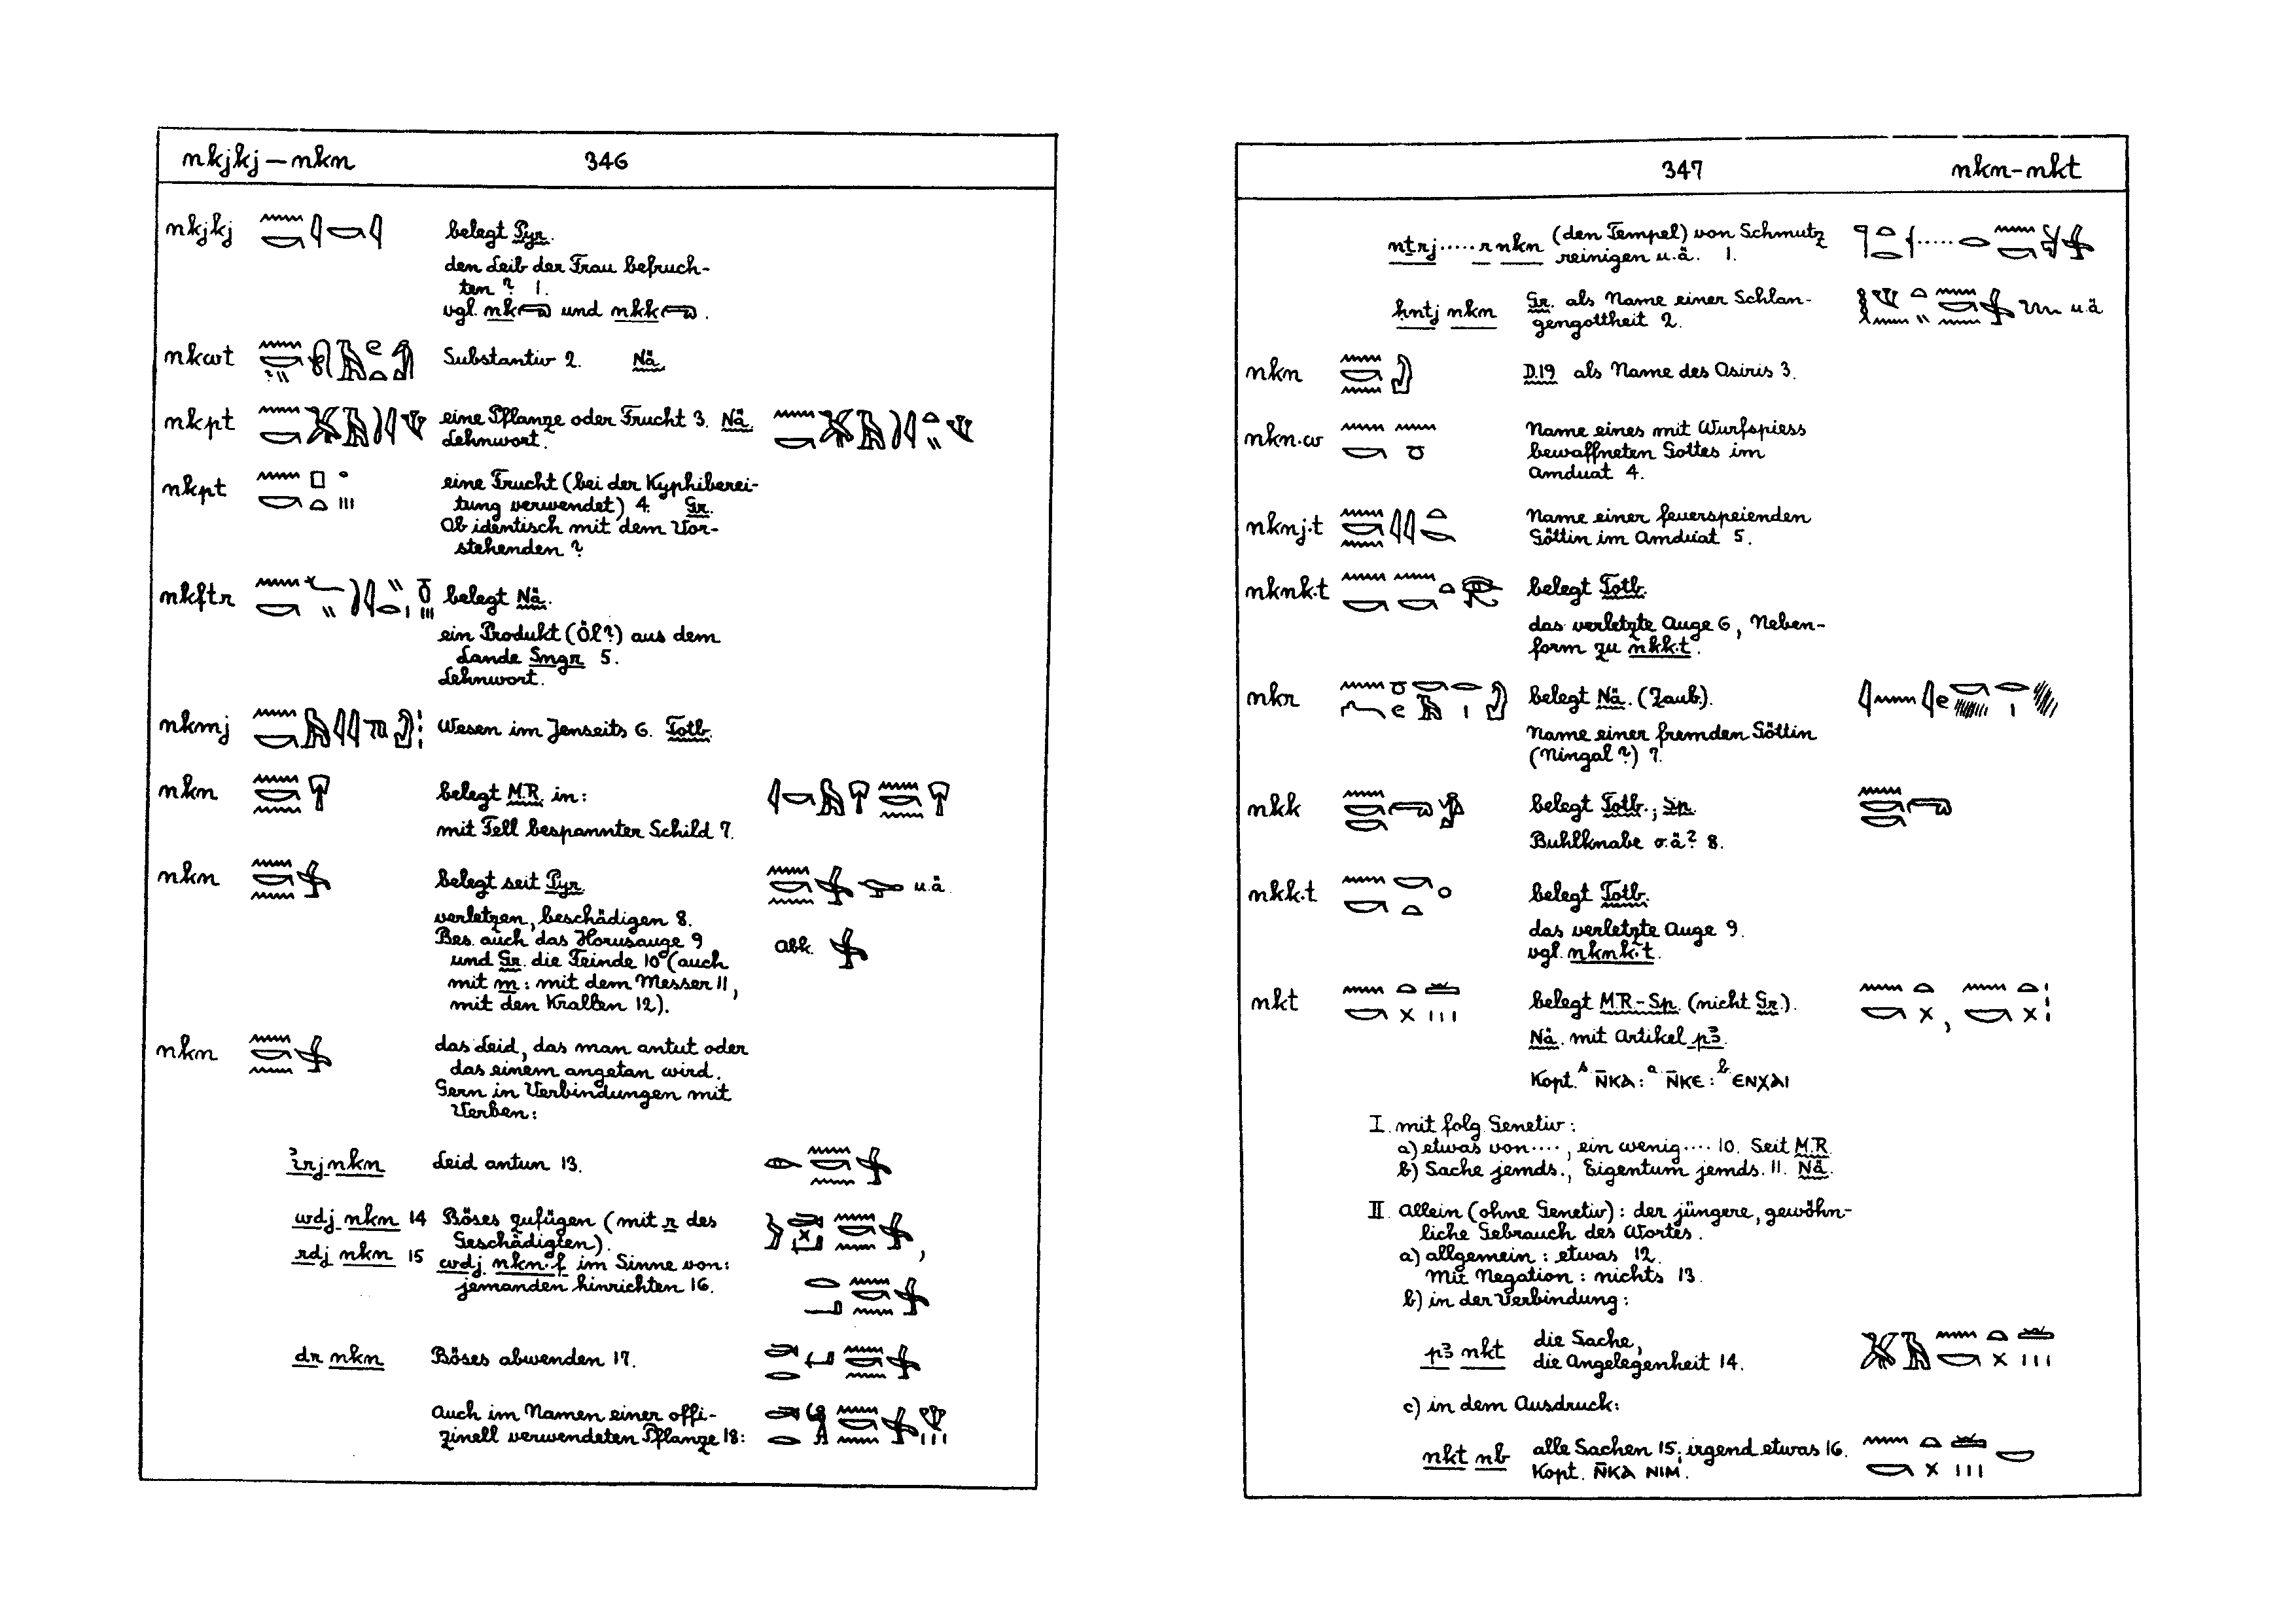 nkjkj — nkn 346
nkjkj belegt Pyr.
den Leib der Frau befruch-
ten? 1.
vgl. nk und nkk .
nkwt Substantiv 2. Nä.
nkpt eine Pflanze oder Frucht 3. Nä.
Lehnwort.
nkpt eine Frucht (bei der Kyphiberei-
tung verwendet) 4. Gr.
Ob identisch mit dem Vor-
stehenden?
nkftr belegt Nä.
ein Produkt (Öl?) aus dem
Lande Sngr 5.
Lehnwort.
nkmj Wesen im Jenseits 6. Totb.
nkn belegt M.R. in:
mit Fell bespannter Schild 7.
nkn belegt seit Pyr. u.ä.
verletzen, beschädigen 8.
Bes. auch das Horusauge 9 abk.
und Gr. die Feinde 10 (auch
mit m: mit dem Messer 11,
mit den Krallen 12).
nkn das Leid, das man antut oder
das einem angetan wird.
Gern in Verbindungen mit
Verben:
ỉrj nkn Leid antun 13.
wdj nkn 14 Böses zufügen (mit r des
Geschädigten). ,
rdj nkn 15 wdj nkn·f im Sinne von:
jemanden hinrichten 16.
dr nkn Böses abwenden 17.
Auch im Namen einer offi-
zinell verwendeten Pflanze 18:
347 nkn-nkt
nṯrj ..... r nkn (den Tempel) von Schmutz
reinigen u.ä. 1.
ḫntj nkn Gr. als Name einer Schlan- u.ä
gengottheit 2.
nkn D.19 als Name des Osiris 3.
nkn·w Name eines mit Wurfspiess
bewaffneten Gottes im
Amduat 4.
nknj·t Name einer feuerspeienden
Göttin im Amduat 5.
nknk·t belegt Totb.
das verletzte Auge 6, Neben-
form zu nkk·t.
nkr belegt Nä. (Zaub.).
Name einer fremden Göttin
(Ningal?) 7.
nkk belegt Totb.; Sp.
Buhlknabe o.ä? 8.
nkk·t belegt Totb.
das verletzte Auge 9.
vgl. nknk·t.
nkt belegt M.R-Sp. (nicht Gr.). ,
Nä. mit Artikel pꜣ.
Kopt. s N̄KA: a N̄KE: b ENXAI
I. mit folg. Genetiv:
a) etwas von ...., ein wenig .... 10. Seit M.R.
b) Sache jemds., Eigentum jemds. 11. Nä.
II. Allein (ohne Genetiv): der jüngere, gewöhn-
liche Gebrauch des Wortes.
a) allgemein: etwas 12.
Mit Negation: nichts 13.
b) in der Verbindung:
pꜣ nkt die Sache,
die Angelegenheit 14.
c) in dem Ausdruck:
nkt nb alle Sachen 15; irgend etwas 16.
Kopt. N̄KA NIM.